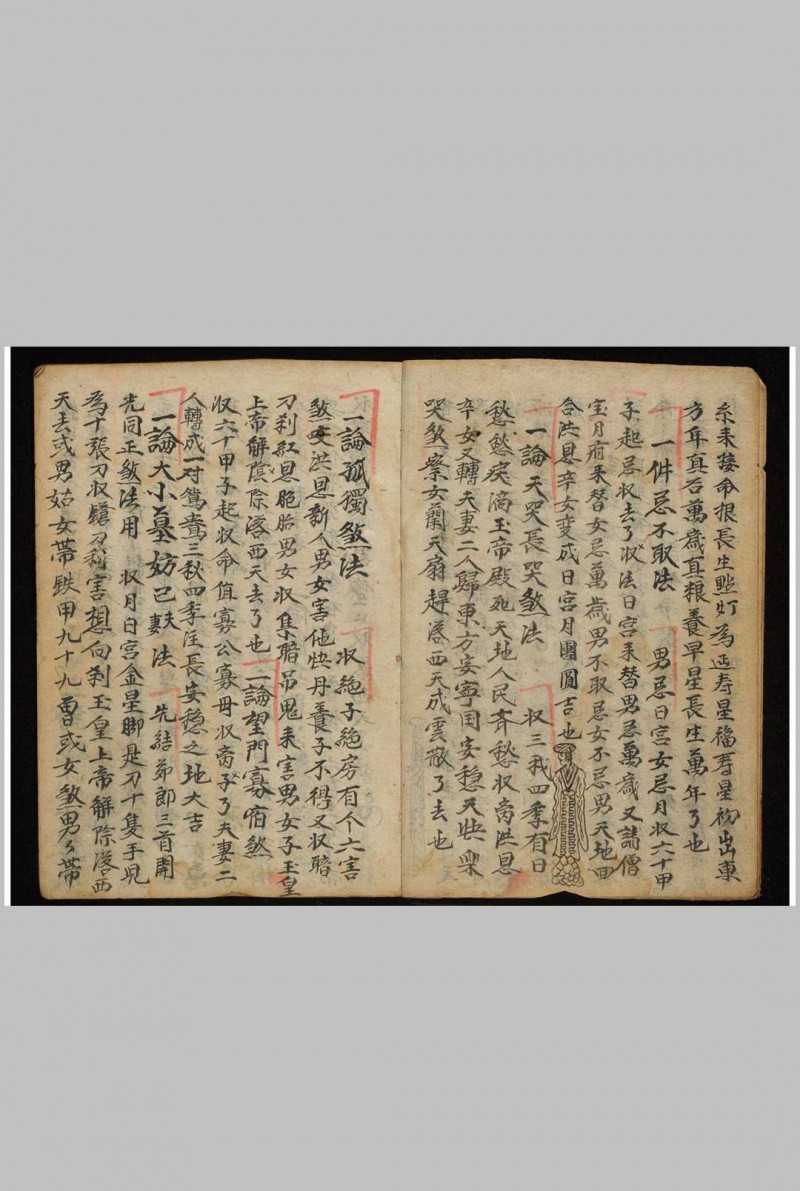 糸来接命根長生點灯為延寿星福寿星初出東
方年真谷萬歳真粮養早星長生萬年了也
一件忌不取法　男忌日宫女忌月収六十甲
子起忌収去了収法日宫来替男忌萬歳又請僧
宝月府来替女忌萬歳男不取忌女不忌男天地四
合洪恩卒女変成日宫月團圓吉也
一論天哭長哭煞法　収三我四季有日
愁愁疾滴玉帝殿死天地人民斉愁収斋洪恩
卒女又轉夫妻二人歸東方安寧囯安穏天快樂
哭煞察女蘭天扇趕落西天成雲散了去也
一論孤獨煞法　収絶子絶房有个六害
煞安洪恩新人男女害他快丹養子不得又収暗
刀刹紅恩胞胎男女収集暗吊鬼来害男女子玉皇
上帝解陰除落西天去了也　一論望門寡宿煞
収六十甲子起収命值寡公寡毋収斋子了夫妻二
人轉成一对鴛鴦三秋四季注長安穏之地大吉
一論大小墓妨已夫妻法　先結茆郎三首開
光同正煞法用　収月日宫金星脚是刀十隻手児
為十張刀収鎗刀利害想向刹玉皇上帝解除落西
天去或男姑女帶鉄甲九十九曺或女煞男々帶